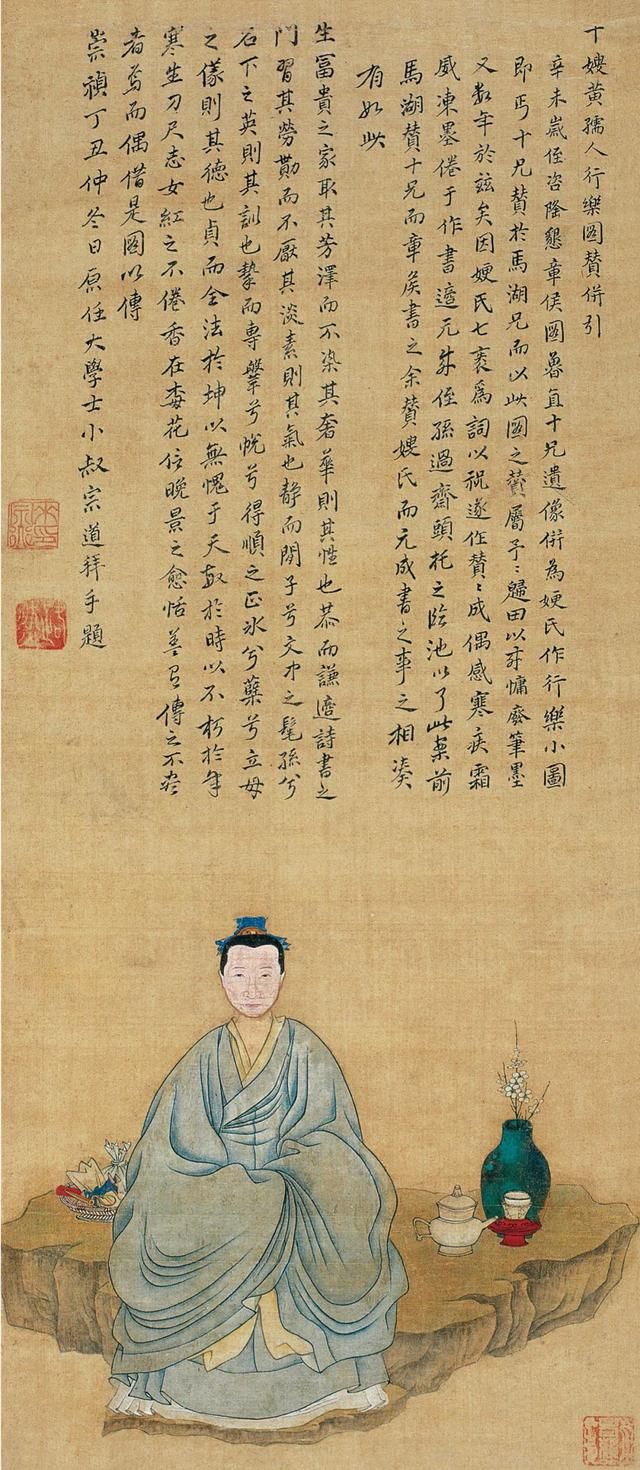 十嫂黄孺人行樂圖贊併引
辛未歲侄咨隆懇章侯圖魯直十兄遺像併為嫂氏作行樂小圖
即丐十兄贊於馬湖兄而以此圖之贊屬予予歸田以來慵廢筆墨
又数年於玆矣因嫂氏七袠爲詞以祝遂作贊贊成偶感寒疾霜
威凍墨倦于作書適元成侄孫過齋頭托之臨池以了此案前
馬湖贊十兄而章矦書之余贊嫂氏而元成書之事之相湊
有如此
生富貴之家取其芳澤而不染其奢華則其性也恭而謙適詩書之
門習其勞勩而不厭其淡素則其氣也静而閒子兮文中之髦孫兮
石下之英則其訓也摯而專鞶兮帨兮得順之正氷兮蘗兮立母
之儀則其德也貞而全法於坤以無愧于天敬於時以不朽於年
寒生刀尺志女紅之不倦香在梅花信晚景之愈恬善爲傳之不盡
者焉而偶借是圖以傳
崇禎丁丑仲冬日原任大學士小叔宗道拜手題